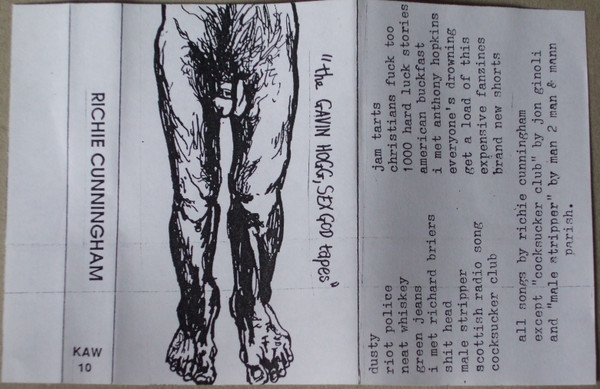 RICHIE CUNNINGHAM
KAW
10
"the GAVIN HOGG, SEX GOD tapes"
dusty
riot police
neat whiskey
green jeans
i met richard briers
shit head
male stripper
scottish radio song
cocksucker club
jam tarts
christians fuck too
1000 hard luck stories
american buckfast
i met anthony hopkins
everyone's drowning
get a load of this
expensive fanzines
brand new shorts
all songs by richie cunningham
except "cocksucker club" by jon ginoli
and "male stripper" by man 2 man & mann
parish.